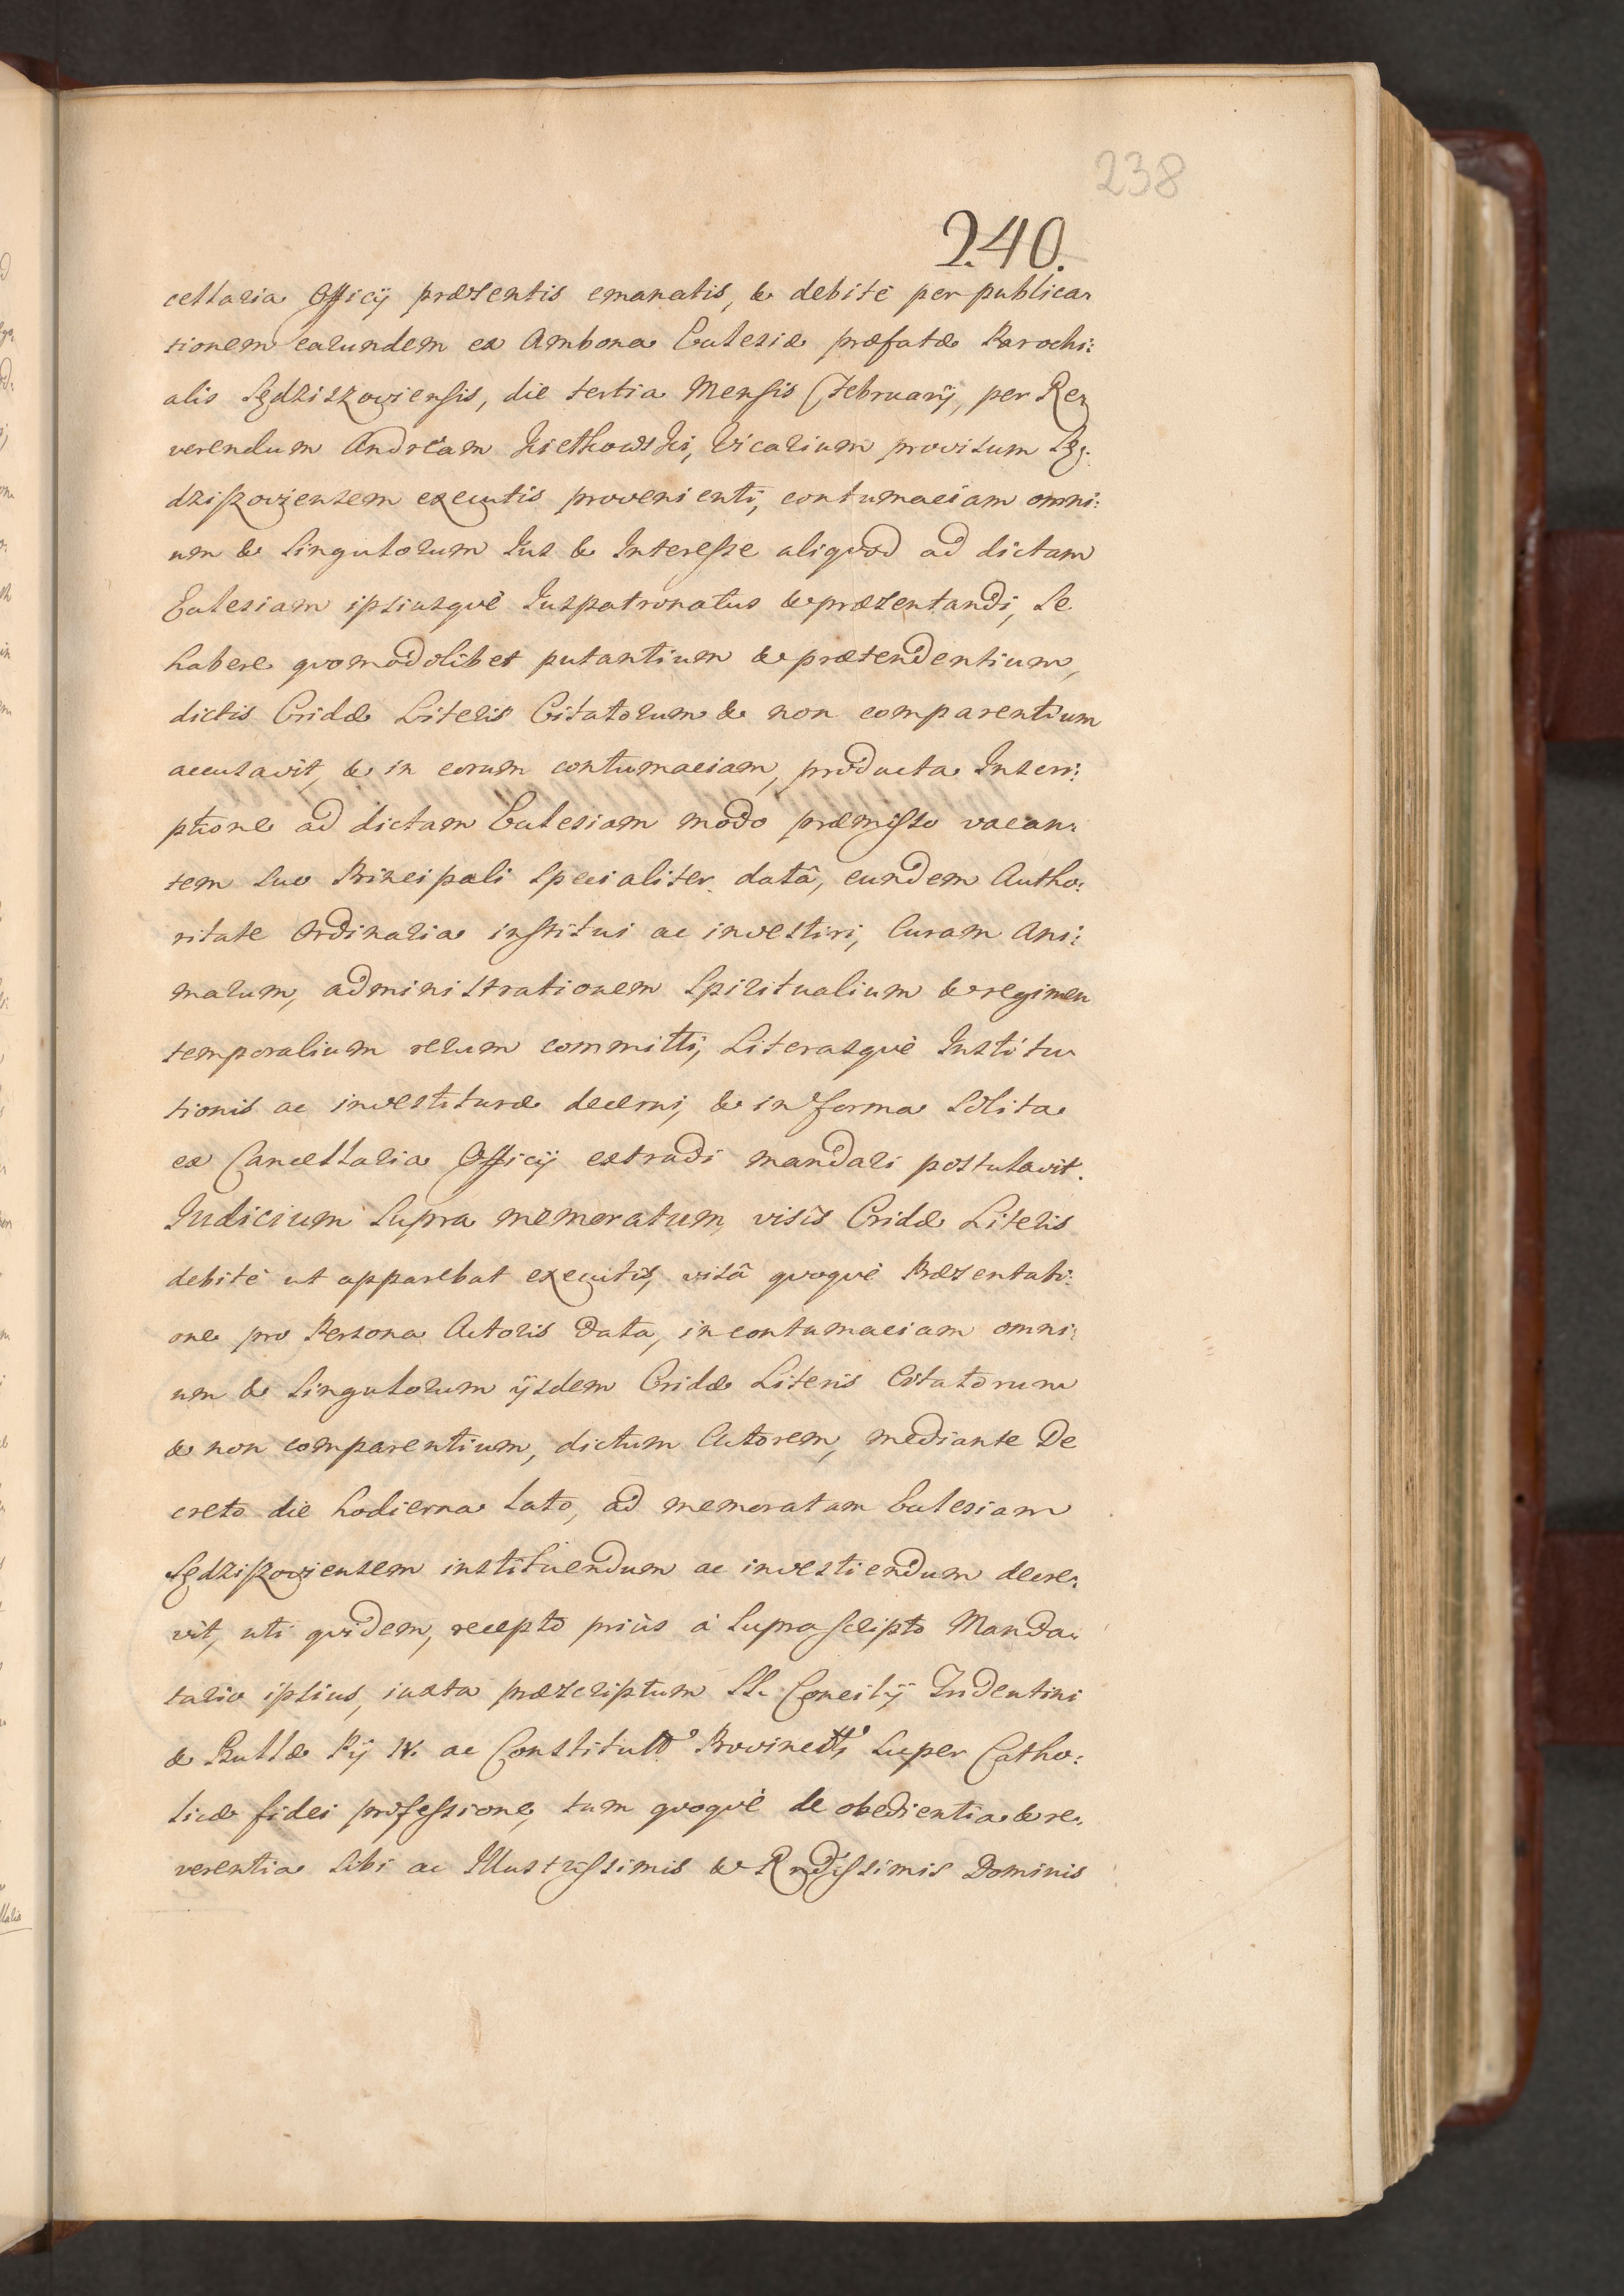 238
240.
cellaria Officij præsentis emanatis, & debitè per publica-
tionem earundem ex Ambona Ecclesiæ præfatæ Parochi:
alis Sędziszoviensis, die tertia Mensis Februarij, per Re-
verendum Andream Kiełkowski, Vicarium provisum Sę:
dziszoviensem executis provenienti, contumaciam omni:
um & singulorum Jus & Interesse aliquod ad dictam
Ecclesiam ipsiusquè Juspatronatus & præsentandi, se
habere quomodolibet putantium & prætendentium,
dictis Cridæ Literis Citatorum & non comparentium
accusavit, & in eorum contumaciam, producta Inscri:
ptione ad dictam Ecclesiam modo præmisso vacan-
tem suo Principali specialiter datâ, eundem Autho:
ritate Ordinaria institui ac investiri, Curam Ani:
marum, administrationem Spiritualium & regimen
temporalium rerum committi, Literasquè Institu-
tionis ac investituræ decerni, & in forma solita
ex Cancellaria Officij extradi mandari postulavit.
Judicium supra memoratum, visis Cridæ Literis
debitè ut apparebat executis, visâ quoquè Præsentati:
one pro Persona Actoris data, in contumaciam omni:
um & singulorum ijsdem Cridæ Literis Citatorum
& non comparentium, dictum Actorem, mediante De
creto die hodierna lato, ad memoratam Ecclesiam
Sędziszoviensem instituendum ac investiendum decre-
vit, uti quidem, recepto priùs à suprascripto Manda-
tario ipsius, iuxta præscriptum SS. Concilij Tridentini
& Bullæ Pij IV. ac Constitutt Provinctt, super Catho:
licæ fidei professione, tum quoquè de obedientia & re-
verentia sibi ac Illustrissimis & Rndissimis Dominis